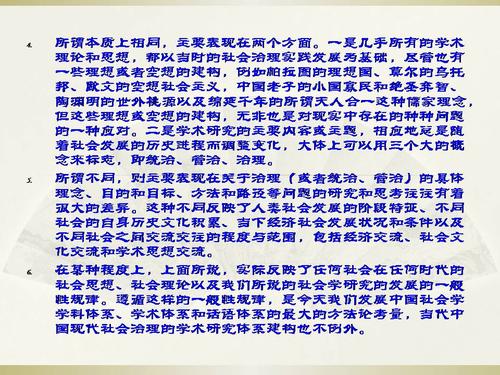 4. 所谓本质上相同，主要表现在两个方面。一是几乎所有的学术
理论和思想，都以当时的社会治理实践发展为基础，尽管也有
一些理想或者空想的建构，例如帕拉图的理想国、莫尔的乌托
邦、欧文的空想社会主义，中国老子的小国寡民和绝圣弃智、
陶渊明的世外桃源以及绵延千年的所谓天人合一这种儒家理念，
但这些理想或空想的建构，无非也是对现实中存在的种种问题
的一种应对。二是学术研究的主要内容或主题，相应地总是随
着社会发展的历史进程而调整变化，大体上可以用三个大的概
念来标志，即统治、管治、治理。
5. 所谓不同，则主要表现在关于治理（或者统治、管治）的具体
理念、目的和目标、方法和路径等问题的研究和思考往往有着
巨大的差异。这种不同反映了人类社会发展的阶段特征、不同
社会的自身历史文化积累、当下经济社会发展状况和条件以及
不同社会之间交流交往的程度与范围，包括经济交流、社会文
化交流和学术思想交流。
6. 在某种程度上，上面所说，实际反映了任何社会在任何时代的
社会思想、社会理论以及我们所说的社会学研究的发展的一般
性规律。遵循这样的一般性规律，是今天我们发展中国社会学
学科体系、学术体系和话语体系的最大的方法论考量，当代中
国现代社会治理的学术研究体系建构也不例外。